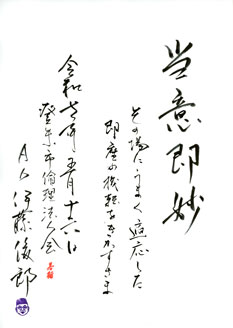 当意即妙
その場にうまく適応した
即座の機転をきかすさま
令和七年五月十六日
登米市倫理法人会
伊藤俊郎